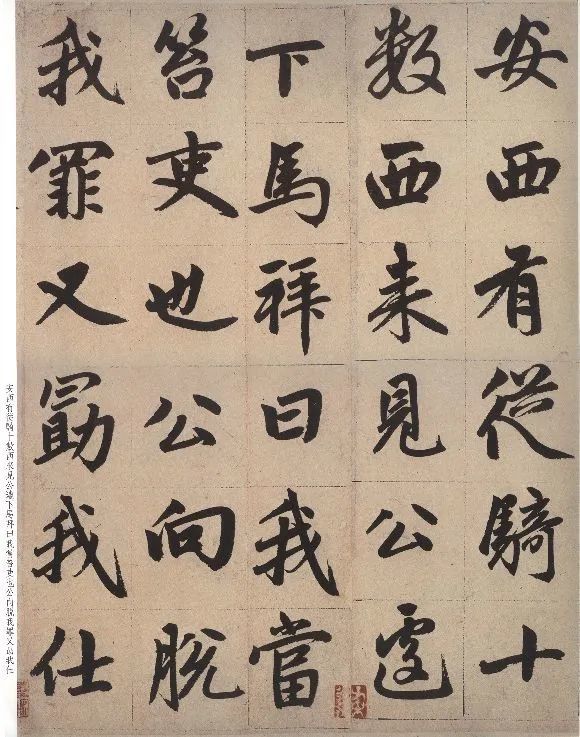 安西有從騎十
数西来見公遽
下馬拜曰我當
笞吏也公向脱
我罪又勗我仕
安西有從騎十數西來見公遽下馬拜曰我當笞吏也公向脱我罪又勗我仕